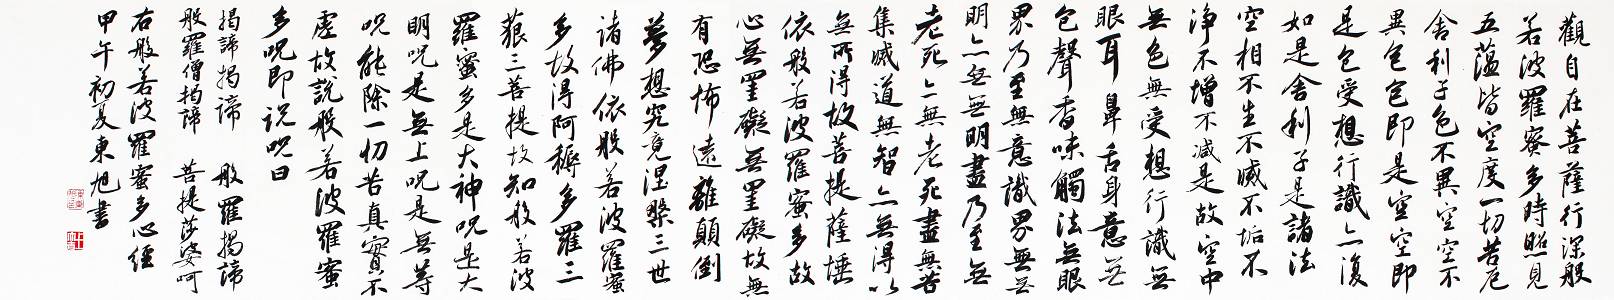 觀自在菩薩行深般
若波羅蜜多時照見
五蘊皆空度一切苦厄
舍利子色不異空空不
異色色即是空空即
是色受想行識亦復
如是舍利子是諸法
空相不生不滅不垢不
淨不增不減是故空中
無色無受想行識無
眼耳鼻舌身意無
色聲香味觸法無眼
界乃至無意識界無無
明亦無無明盡乃至無
老死亦無老死盡無苦
集滅道無智亦無得以
無所得故菩提薩埵
依般若波羅蜜多故
心無罣礙無罣礙故無
有恐怖遠離顛倒
夢想究竟涅槃三世
諸佛依般若波羅蜜
多故得阿耨多羅三
藐三菩提故知般若波
羅蜜多是大神咒是大
明咒是無上咒是無等
咒能除一切苦真實不
虛故說般若波羅蜜
多咒即说咒曰
揭諦揭諦 般羅揭諦
般羅僧揭諦 菩提莎婆呵
右般若波羅蜜多心經
甲午初夏東旭書